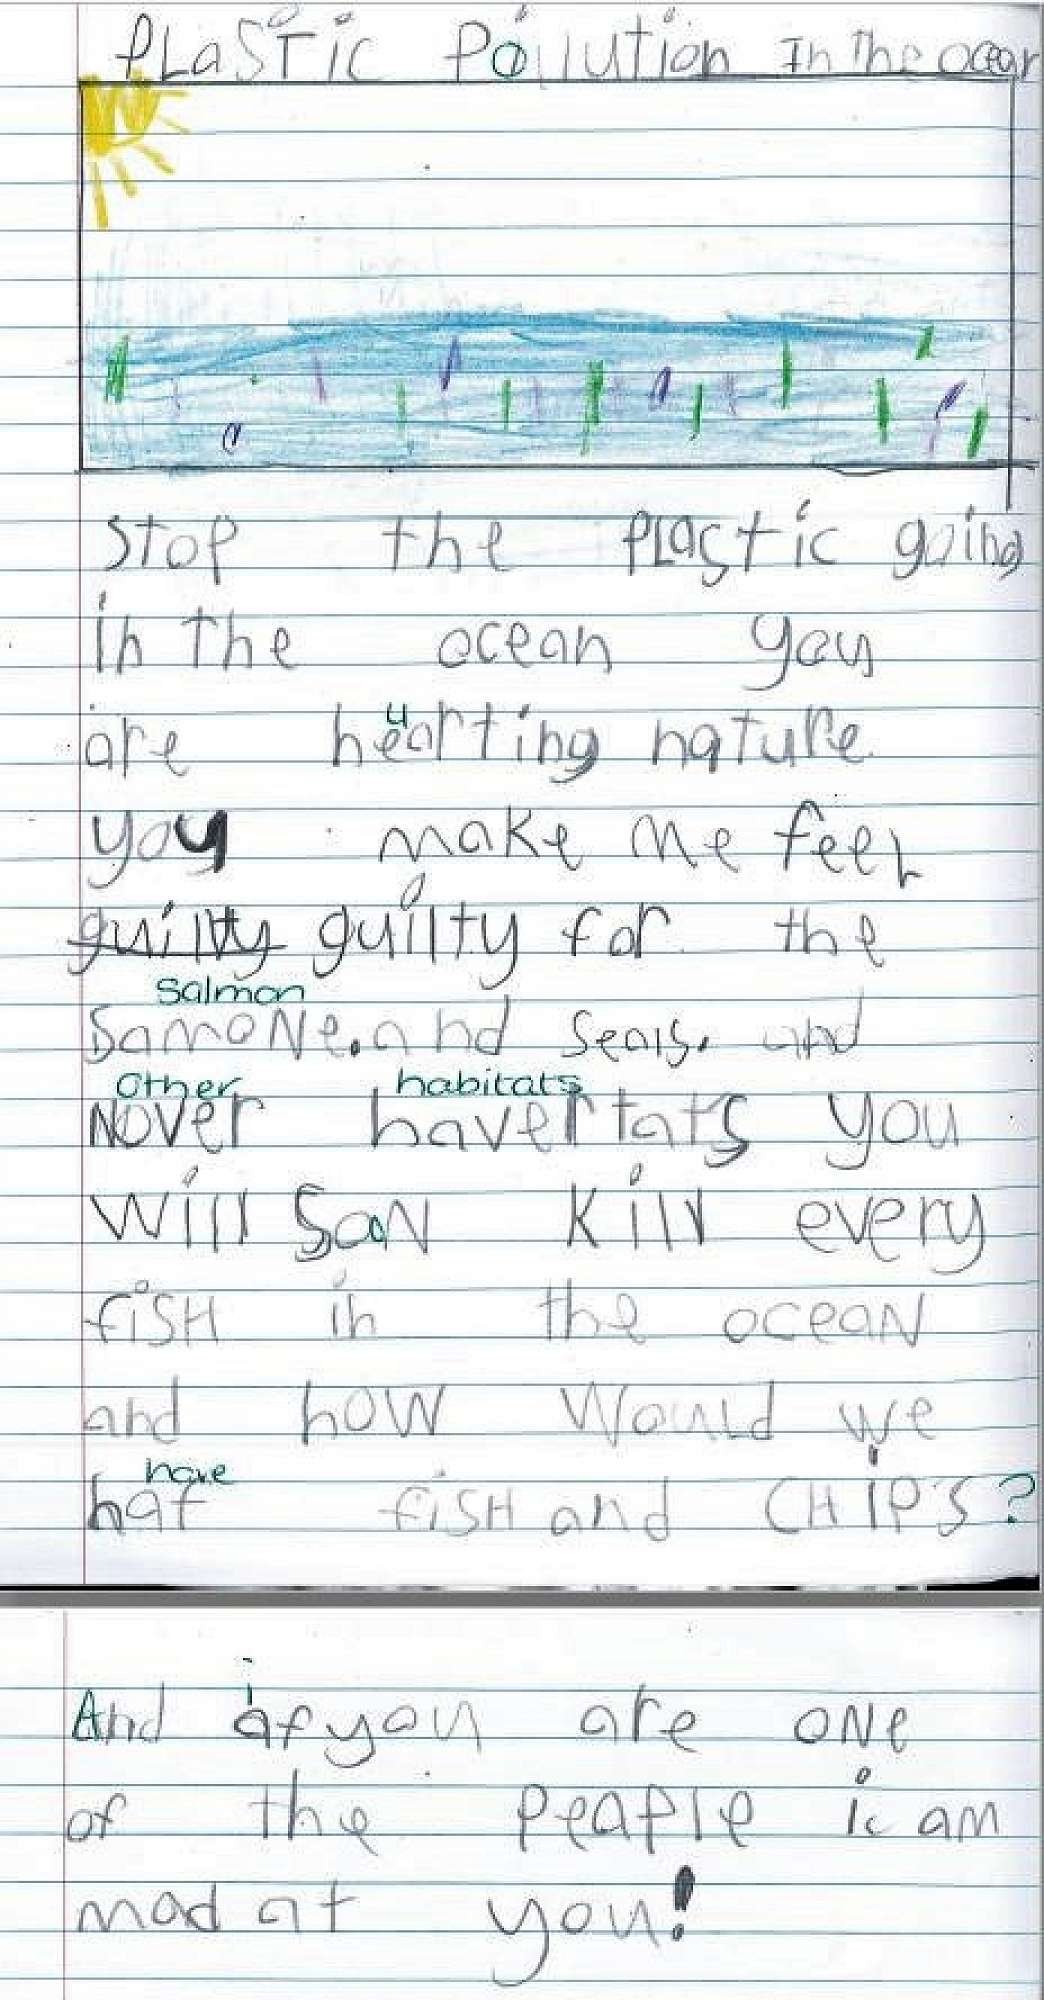 PLaSTic Pollution In The ocean
Stop the PLastic going
in The ocean you
u
are hearting nature
you make me feel
guilty guilty for the
Salmon
SamoNe.and seals. and
Other habitats
Nover havertats you
will SooN kill every
fiSH in the oceaN
and how would we
have
haf fiSH and CHiPS?
And if you are oNe
of the peaple ic am
mad at you!